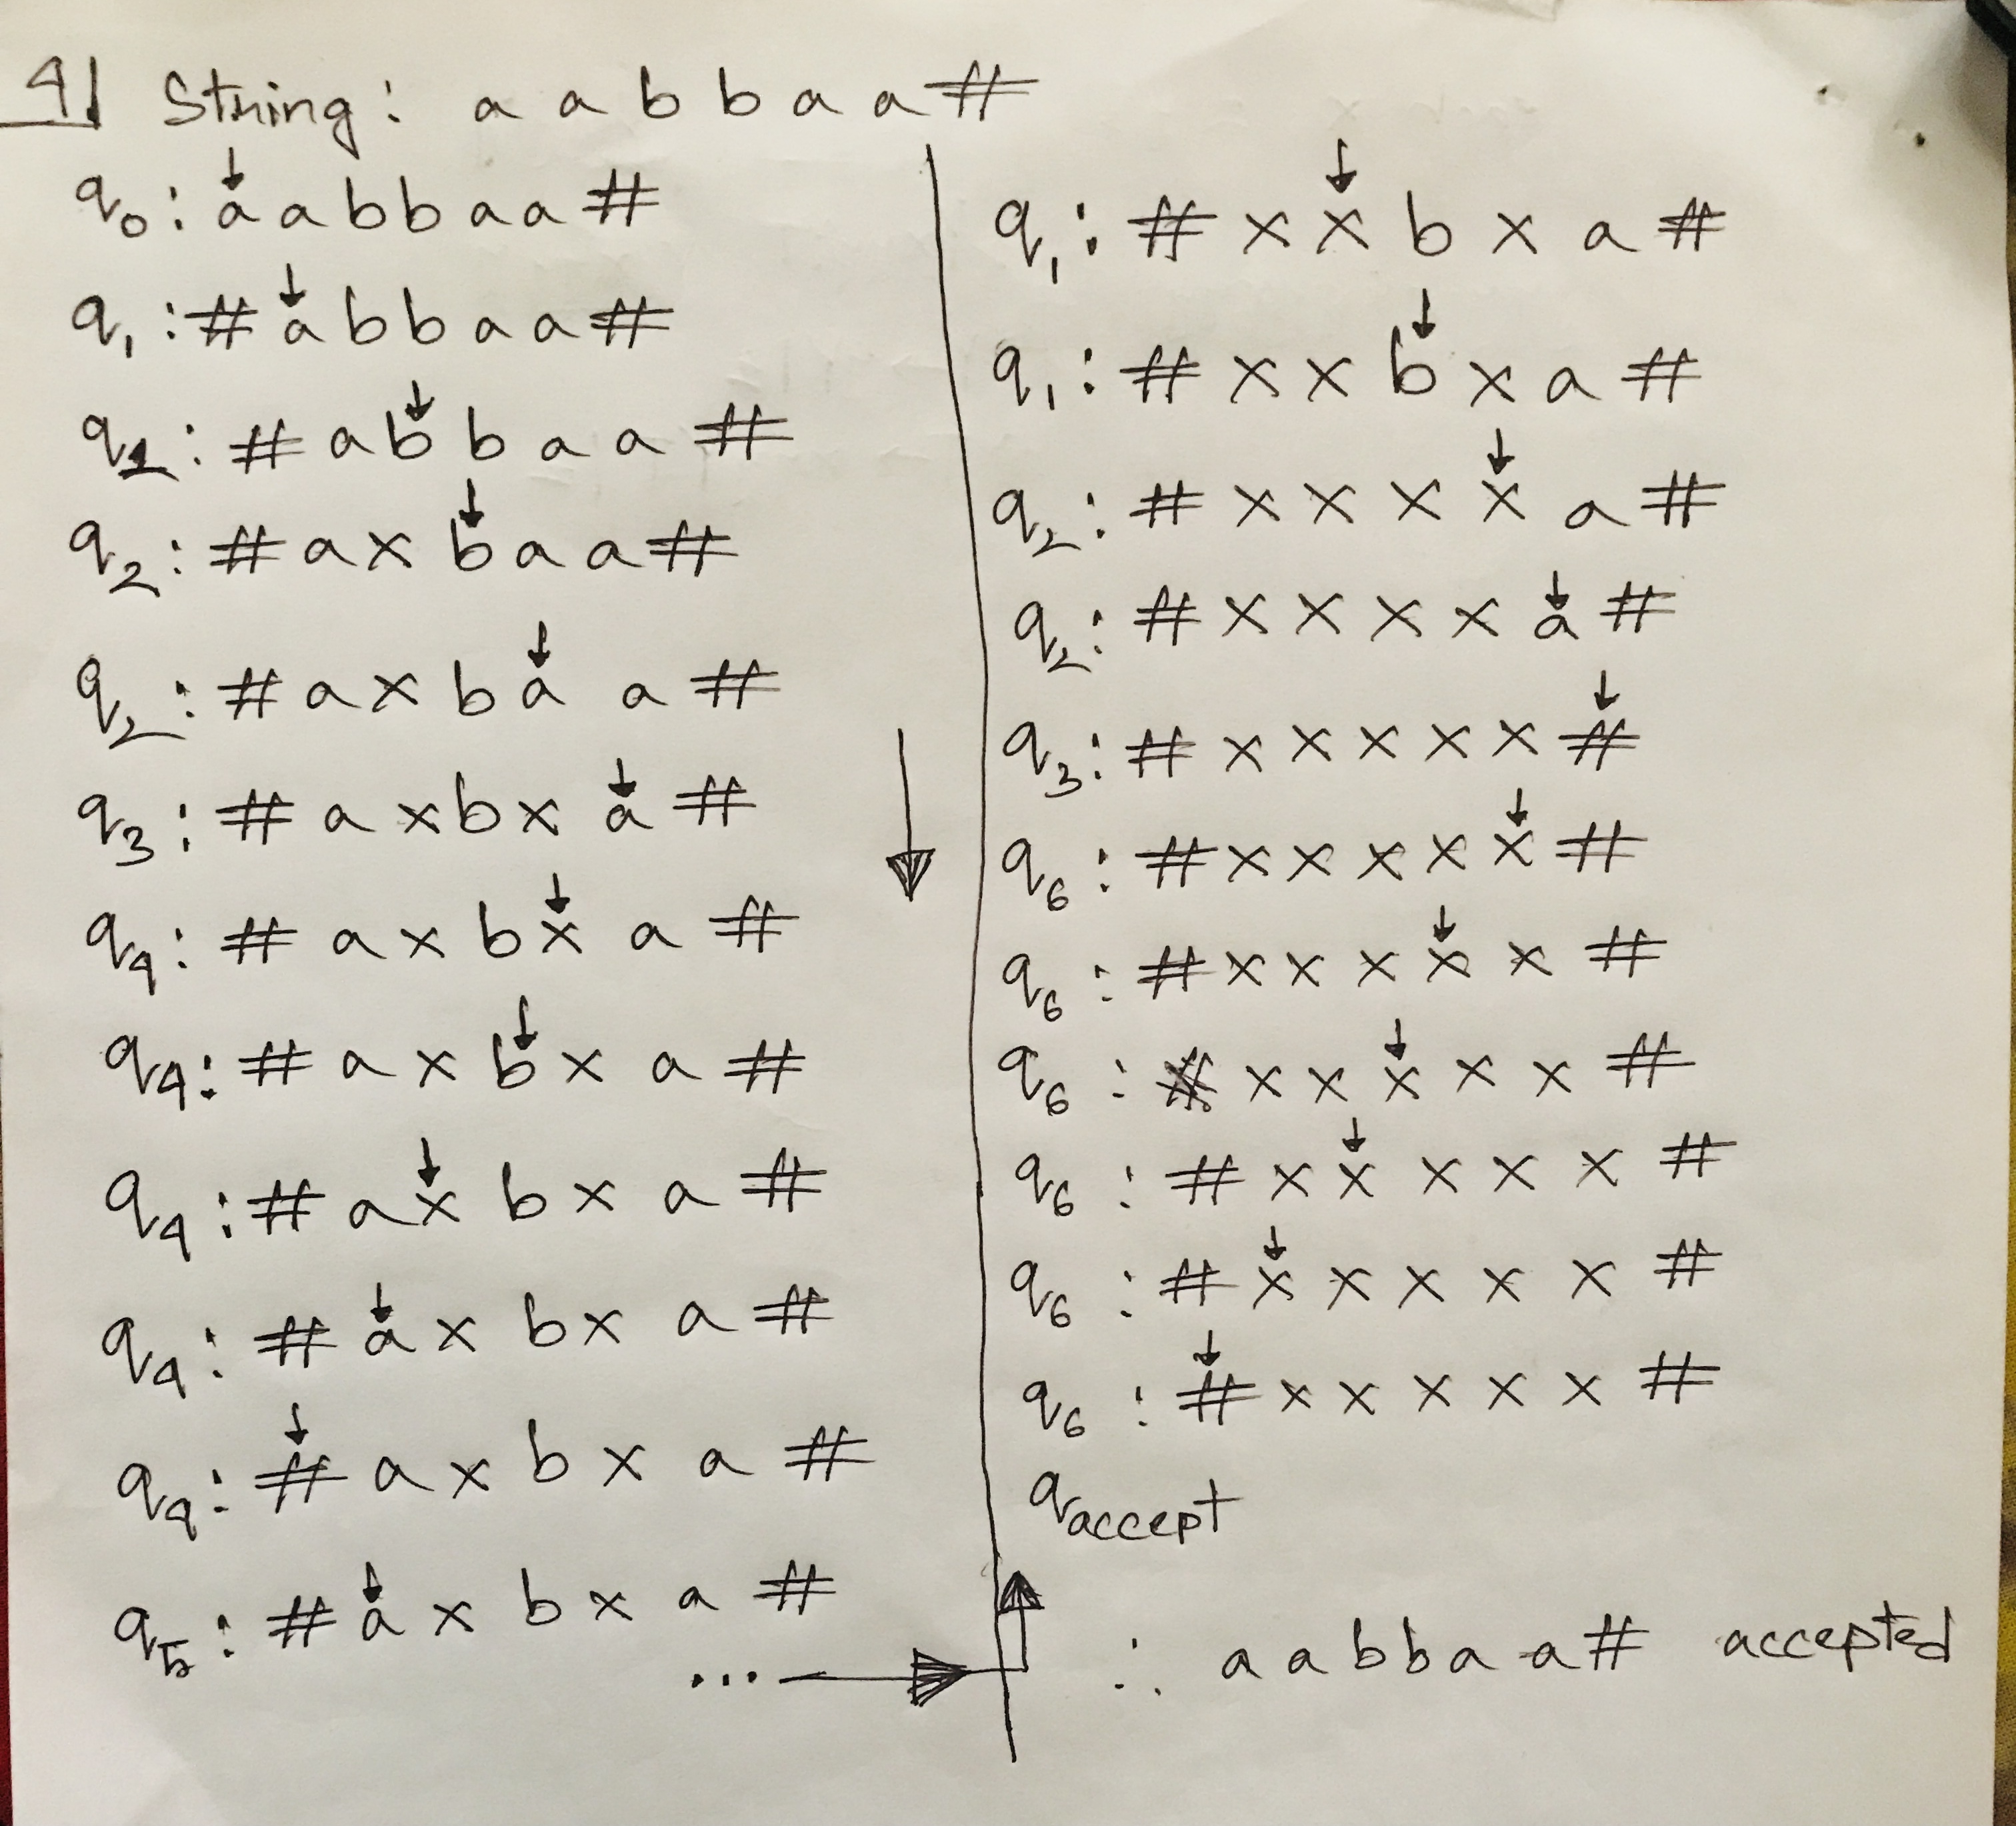 4| String: a a b b a a #
q0: a a b b a a #
q1: # a b b a a #
q1: # a b b a a #
q2: # a x b a a #
q2: # a x b a a #
q3: # a x b x a #
q4: # a x b x a #
q4: # a x b x a #
q4: # a x b x a #
q4: # a x b x a #
q4: # a x b x a #
q5: # a x b x a #
...
q1: # x x b x a #
q1: # x x b x a #
q2: # x x x x a #
q2: # x x x x a #
q3: # x x x x x #
q6: # x x x x x #
q6: # x x x x x #
q6: # x x x x x #
q6: # x x x x x #
q6: # x x x x x #
q6: # x x x x x #
qaccept
∴ a a b b a a # accepted